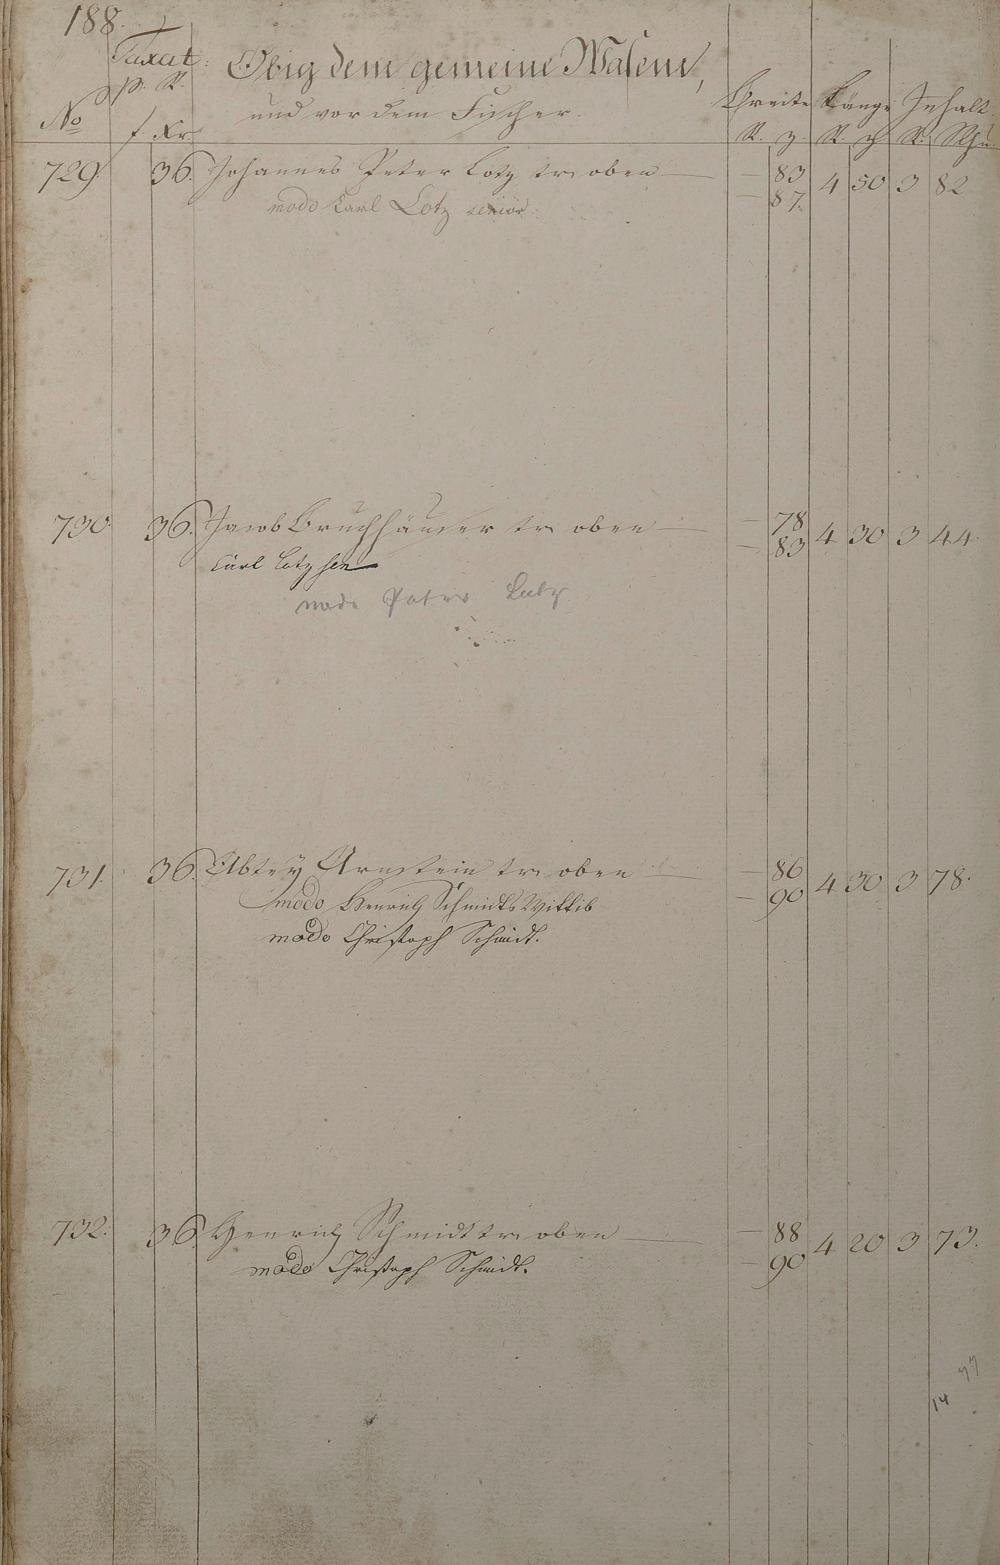 188.
Taxat: Obig dem gemeine Wasem,
p. R. und vor dem Fischer. Breite Länge Inhalt
No f Xr R. R R. Schu
729 36. Johannes Peter Lotz tr: oben — 83 4 50 3 82
modo Carl Lotz senior — 87.
730 36. Jacob Bruchhäuser tr: oben — 78 4 30 3 44
Carl Lotz sen — 83
modo Peter Lutz
731. 36. Abtey Arnstein tr: oben — 86 4 30 3 78.
modo Henrich Schmidts Wittib — 90
modo Christoph Schmidt.
732. 36. Henrich Schmidt tr: oben — 88 4 20 3 73.
modo Christoph Schmidt. — 90
77
14